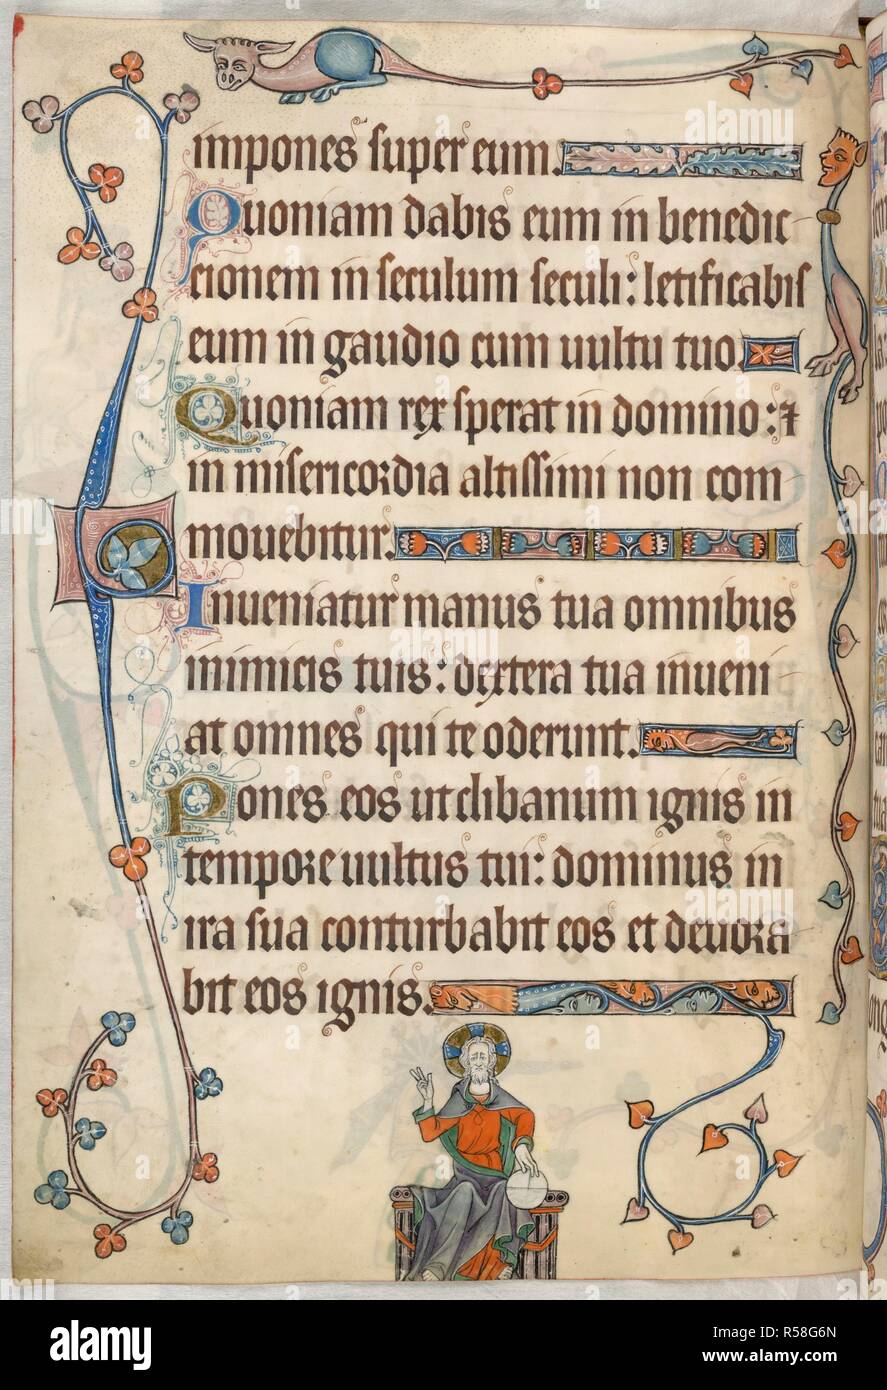 impones super eum.
Quoniam dabis eum in benedic-
cionem in seculum seculi: letificabis
eum in gaudio cum uultu tuo.
Quoniam rex sperat in domino: ⁊
in misericordia altissimi non com-
mouebitur.
Inueniatur manus tua omnibus
inimicis tuis: dextera tua inueni-
at omnes qui te oderunt.
Pones eos ut clibanum ignis in
tempore uultus tui: dominus in
ira sua conturbabit eos et deuora-
bit eos ignis.
alamy
Image ID: R58G6N
www.alamy.com